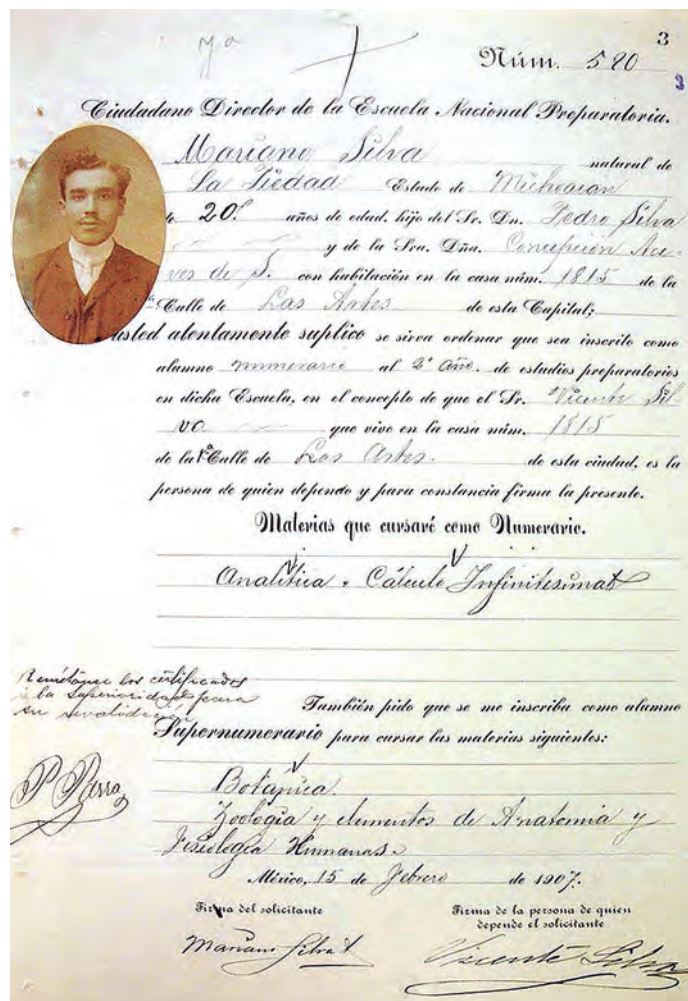 7a
3
Núm. 520
3
Ciudadano Director de la Escuela Nacional Preparatoria.
Mariano Silva natural de
La Piedad Estado de Michoacan
de 20. años de edad, hijo del Sr. Dn. Pedro Silva
y de la Sra. Dña. Concepcion Ace-
ves de S. con habitación en la casa núm. 1815 de la
Calle de Las Artes de esta Capital;
usted atentamente suplico se sirva ordenar que sea inscrito como
alumno numerario al 2º año. de estudios preparatorios
en dicha Escuela, en el concepto de que el Sr. Vicente Sil-
va que vive en la casa núm. 1815
de la 1ª Calle de Las Artes. de esta ciudad, es la
persona de quien dependo y para constancia firma la presente.
Materias que cursaré como Numerario.
Analítica y Cálculo Infinitesimal
Remítanse los certificados
a la superioridad para
su revalidación
P Parra
También pido que se me inscriba como alumno
Supernumerario para cursar las materias siguientes:
Botánica.
Zoología y elementos de Anatomía y
Fisiología Humanas.
México, 15 de Febrero de 1907.
Firma del solicitante
Firma de la persona de quien
depende el solicitante
Mariano Silva
Vicente Silva